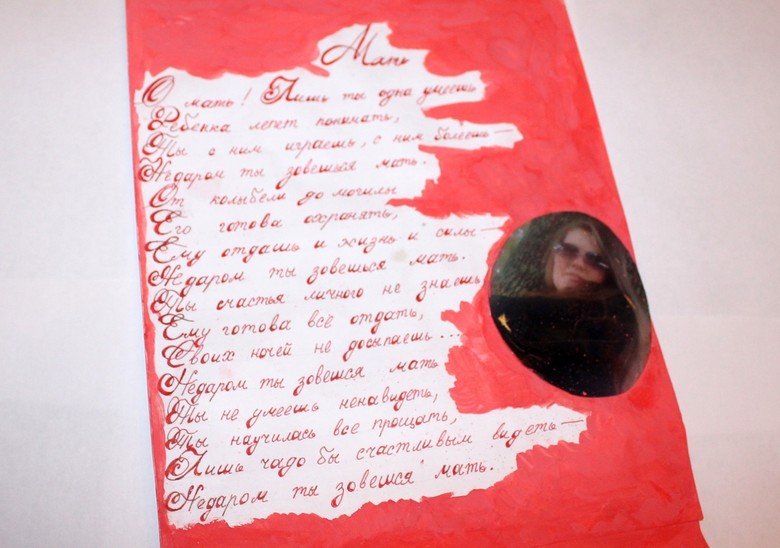 Мать
О мать! Лишь ты одна умеешь
Ребёнка лепет понимать,
Ты с ним играешь, с ним болеешь—
Недаром ты зовешься мать.
От колыбели до могилы
Его готова охранять,
Ему отдашь и жизнь и силы—
Недаром ты зовешься мать.
Ты счастья личного не знаешь
Ему готова всё отдать,
Своих ночей не досыпаешь...
Недаром ты зовешся мать
Ты не умеешь ненавидеть,
Ты научилась все прощать,
Лишь чадо бы счастливым видеть—
Недаром ты зовешся мать.